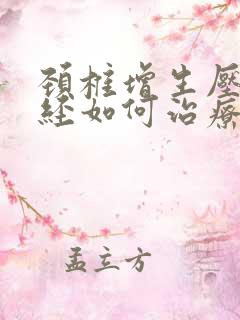 頚椎增生壓
經如何治療
孟立方